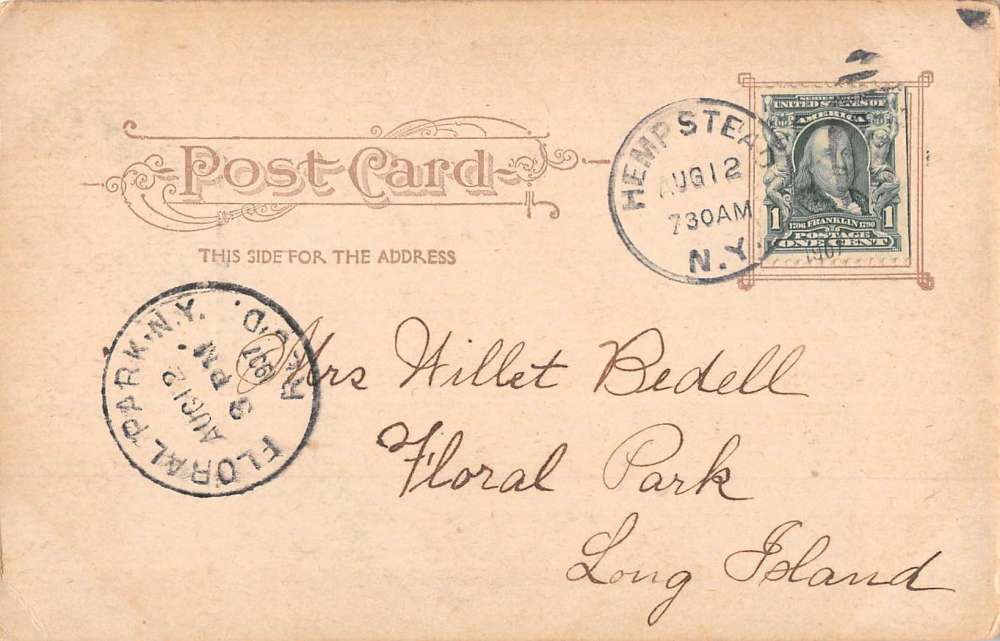 Post Card
THIS SIDE FOR THE ADDRESS
HEMPSTEAD
AUG 12
730AM
N.Y.
1907
UNITED STATES OF
AMERICA
1 1706 FRANKLIN 1790 1
POSTAGE
ONE CENT
FLORAL PARK, N.Y.
AUG 12
PM
1907
REC'D.
Mrs Willet Bedell
Floral Park
Long Island